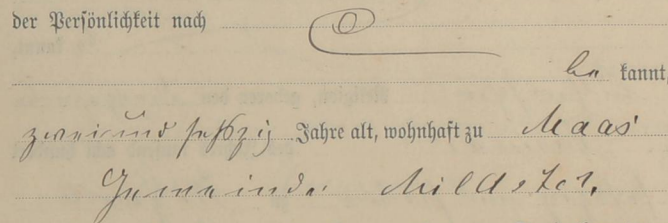 der Persönlichkeit nach
be kannt,
zwei und sechszig Jahre alt, wohnhaft zu Maas
Gemeinde Mildstet.